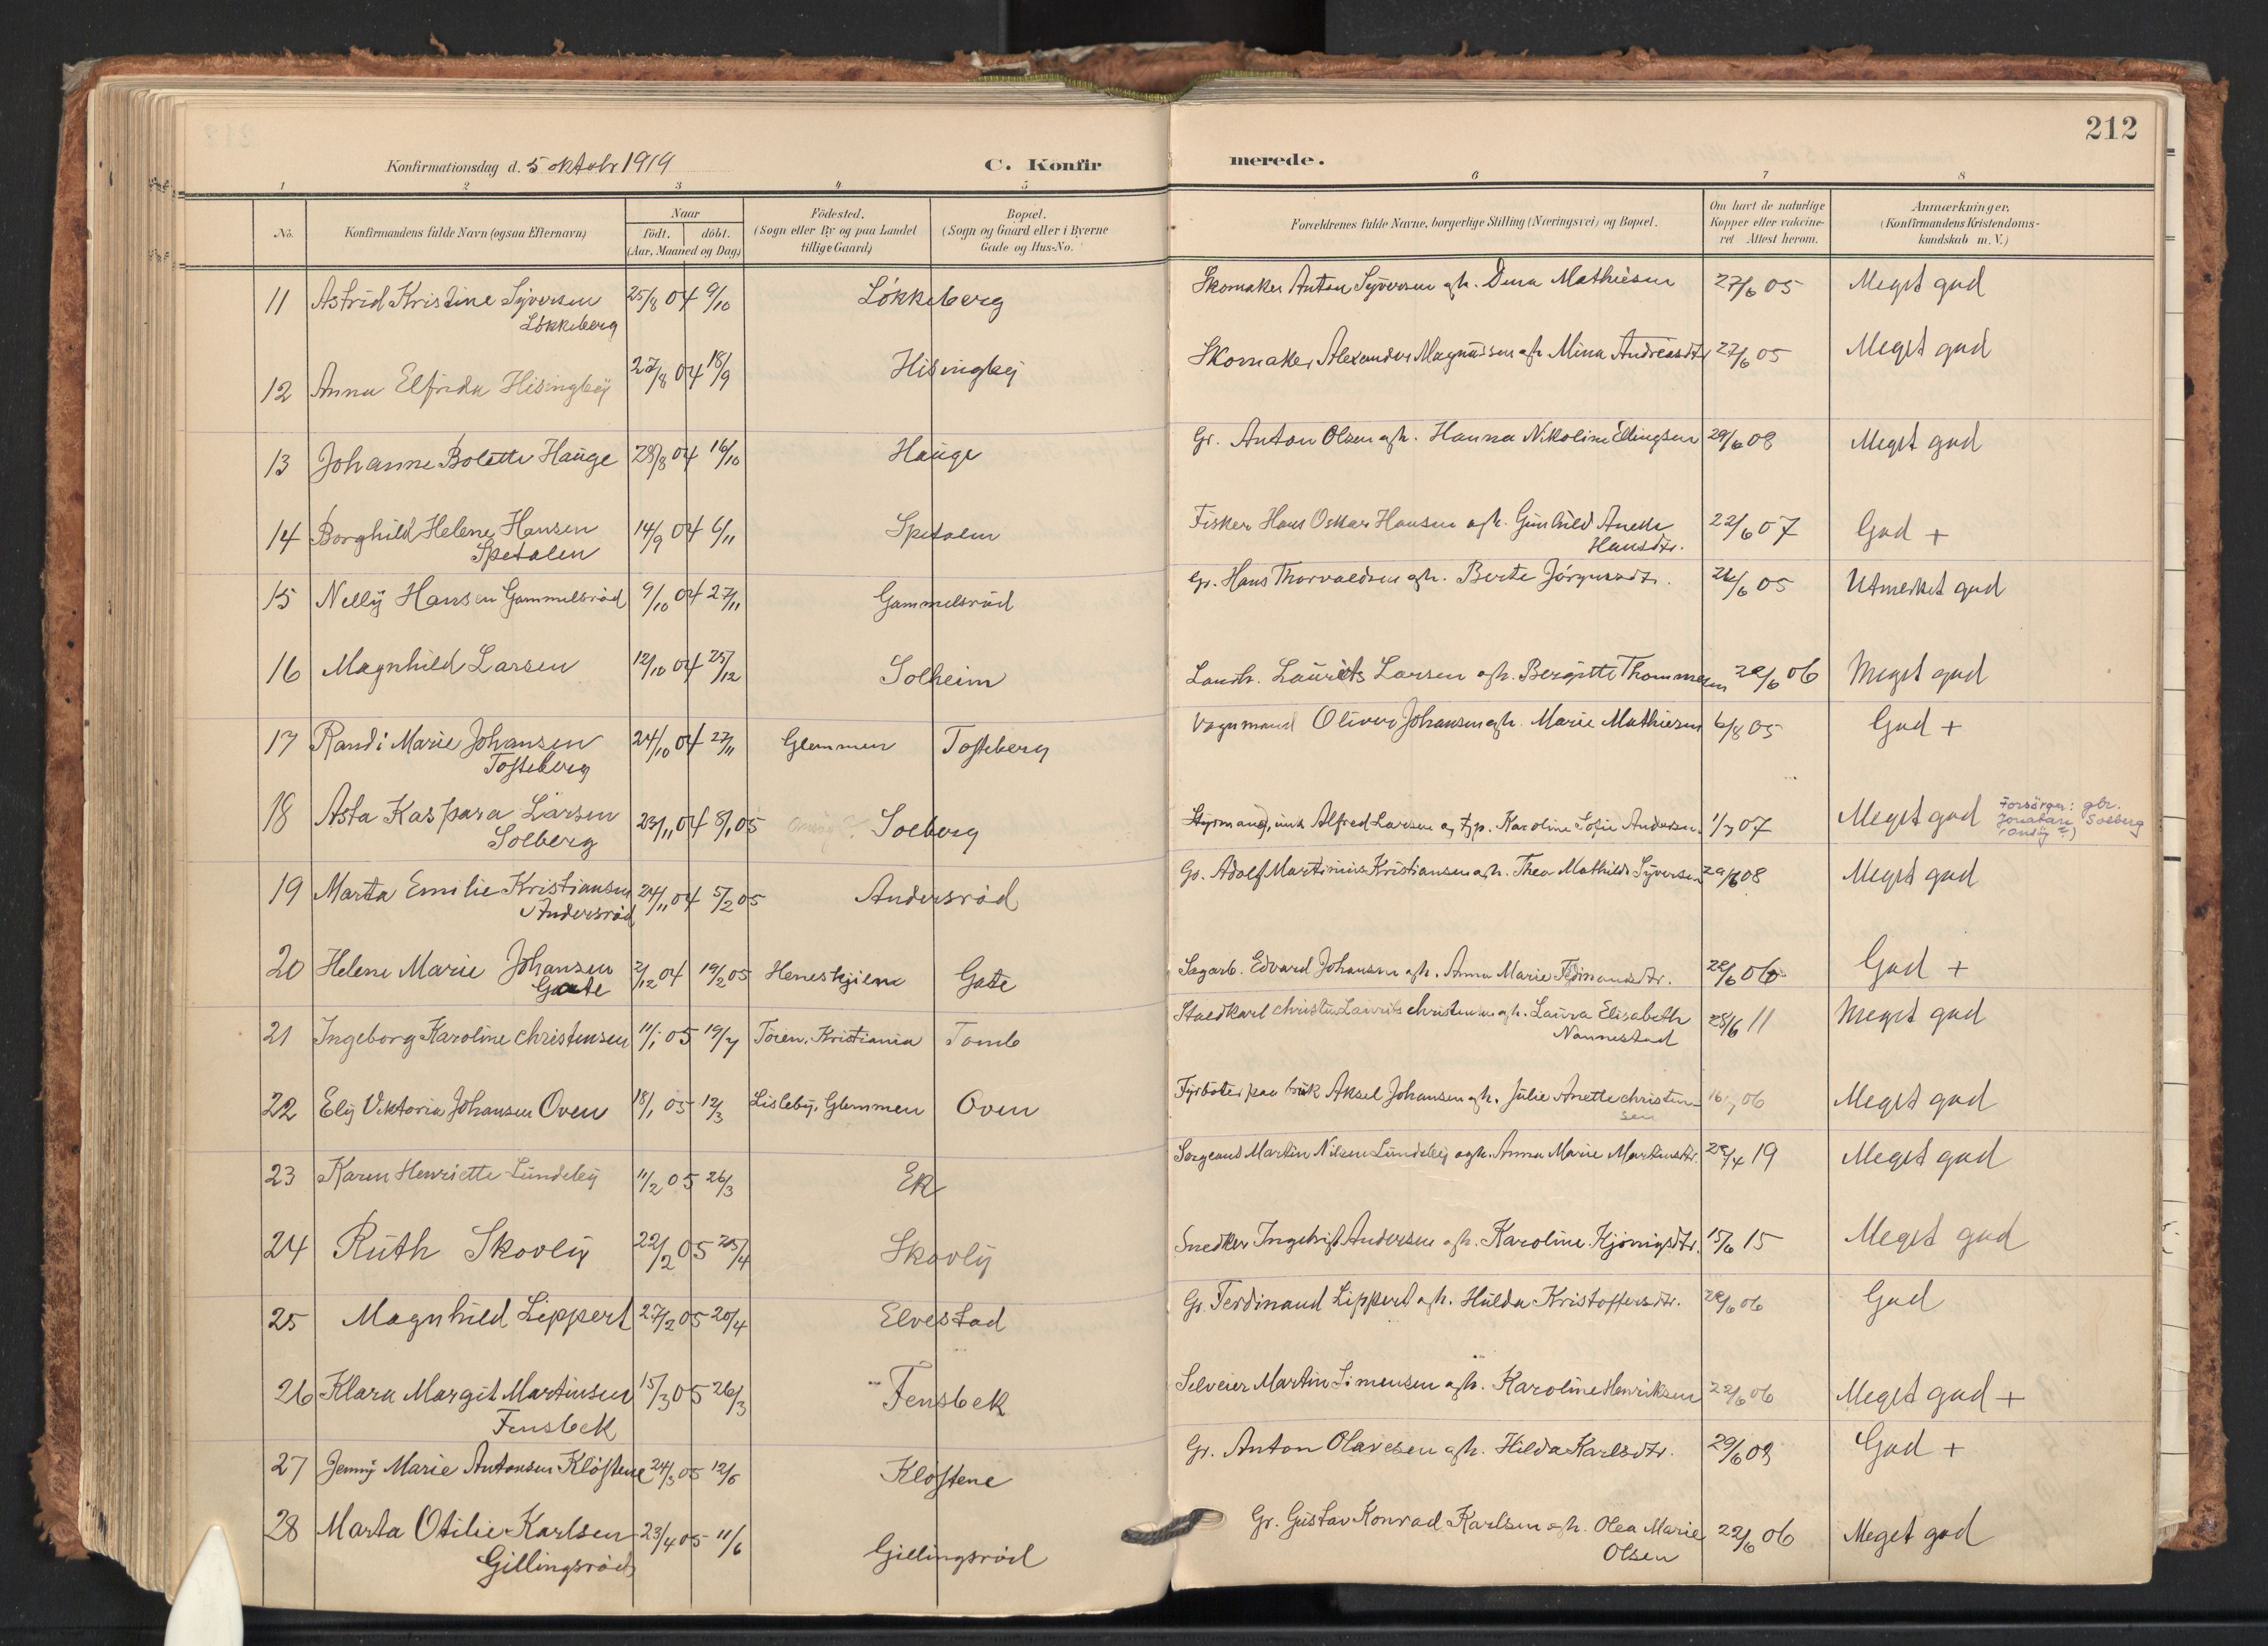 212
Konfirmationsdag d. 5 oktobr 1919
C. Konfir merede.
1 2 3 4 5 6 7 8
No.
Konfirmandens fulde Navn (ogsaa Efternavn)
Naar
født. døbt.
(Aar, Maaned og Dag)
Fødested.
(Sogn eller By og paa Landet
tillige Gaard)
Bopæl.
(Sogn og Gaard eller i Byerne
Gade og Hus-No.
Forældrenes fulde Navne, borgerlige Stilling (Næringsvei) og Bopæl.
Om havt de naturlige
Kopper eller vakcine-
ret Attest herom.
Anmærkninger.
(Konfirmandens Kristendoms-
kundskab m. V.)
11 Astrid Kristine Syversen 25/8 04 9/10 Løkkeberg Skomaker Anton Syversen og h. Dina Mathiesen 27/6 05 Meget god
Løkkeberg
12 Anna Elfrida Hisingbÿ 27/8 04 18/9 Hisingbÿ Skomaker Alexander Magnussen og h. Mina Andreasdtr 27/6 05 Meget god
13 Johanne Bolette Hauge 28/8 04 16/10 Hauge Gr. Anton Olsen og h. Hanna Nikoline Ellingsen 29/6 08 Meget god
14 Borghild Helene Hansen 14/9 04 6/11 Spetalen Fisker Hans Oskar Hansen og h. Gunhild Anette 22/6 07 God +
Spetalen Hansdtr.
15 Nelly Hansen Gammelsrød 9/10 04 27/11 Gammelsrød Gr. Hans Thorvaldsen og h. Berte Jørgensdtr. /6 05 Utmerket god
16 Magnhild Larsen 12/10 04 25/12 Solheim Landh. Laurits Larsen og h. Bergitte Thommesen 22/6 06 Meget god
17 Randi Marie Johansen 24/10 04 27/11 Glemmen Tosteberg Vognmand Oliver Johansen og h. Marie Mathiesen 6/8 05 God +
Tosteberg
18 Asta Kaspara Larsen 23/11 04 8/1 05 Solberg Styrmand, unk Alfred Larsen og p. Karoline Sofie Andersen. 1/7 07 Meget god Forsørger: gbr.
Solberg Jonatan Solberg
(Onsøy?)
19 Marta Emilie Kristiansen 24/11 04 5/2 05 Andersrød Gr. Adolf Martinius Kristiansen og h. Thea Mathilde Syversen 29/6 08 Meget god
Andersrød
20 Helene Marie Johansen 2/12 04 19/2 05 Heneskjem Gate Sagarb. Edvard Johansen og h. Anna Marie Ferdinandsdtr. 22/6 06 God +
Gate
21 Ingeborg Karoline Christensen 11/1 05 19/7 Tøien, Kristiania Tomb Staldkarl Christen Laurits Christensen og h. Laura Elisabeth 28/6 11 Meget god
Nannestad
22 Ely Viktoria Johansen Oven 18/1 05 12/3 Lisleby, Glemmen Oven Fyrbøter paa bruk Aksel Johansen og h. Julie Anette Christen- 16/7 06 Meget god
sen
23 Karen Henriette Lundeby 11/2 05 26/3 Ek Sergeant Martin Nilsen Lundeby og h. Anna Marie Martinsdtr. 22/4 19 Meget god
24 Ruth Skovly 22/2 05 25/4 Skovly Snedker Ingebrigt Andersen og h. Karoline Kjønigsdtr. 15/6 15 Meget god
25 Magnhild Lippert 27/2 05 20/4 Elvestad Gr. Ferdinand Lippert og h. Hulda Kristoffersdtr. 22/6 06 God
26 Klara Margit Martinsen 15/3 05 26/3 Fensbek Selveier Martin Simensen og h. Karoline Henriksen 22/6 06 Meget god +
Fensbek
27 Jenny Marie Antonsen Kløstene 24/3 05 12/6 Klostene Gr. Anton Olavesen og h. Hilda Karlsdtr. 29/6 08 God +
28 Marta Otilie Karlsen 23/4 05 11/6 Gillingsrød Gr. Gustav Konrad Karlsen og h. Olea Marie 22/6 06 Meget god
Gillingsrød Olsen